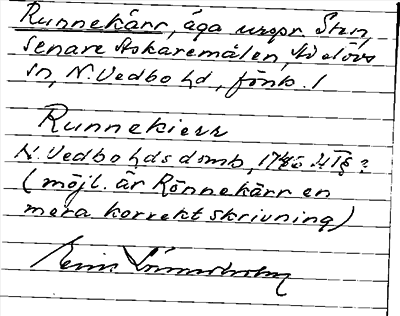 Runnekärr, äga urspr. Sten,
senare Askaremålen, Adelövs
sn, N. Vedbo hd, Jönk. l
Runnekierr
N. Vedbo hds domb, 17
(möjl. är Rönnekärr en
mera korrekt skrivning)